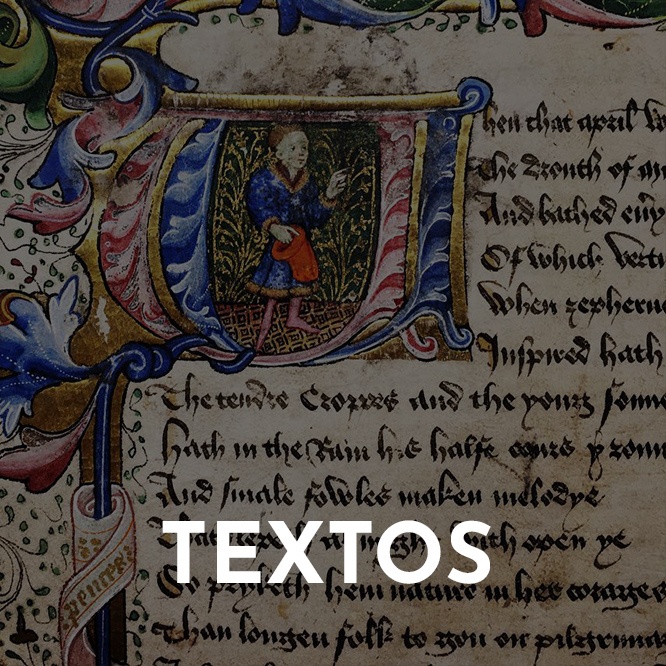 hen that april
The drouth of
And bathed eu'y
Of which vertu
When zepheru
Inspired hath
The tendre Croppes and the yong sonne
Hath in the Ram his halfe cours yronn
And smale fowles maken melodye
nyght with open ye
So pryketh hem nature in her corages
Than longen folk to gon on pilgrima
TEXTOS